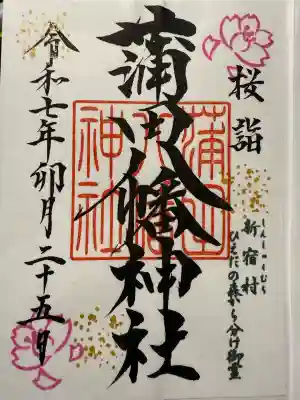 桜詣
しんしゅくむら
新宿村
ひえだの森から分け御霊
蒲田八幡神社
令和七年卯月二十五日